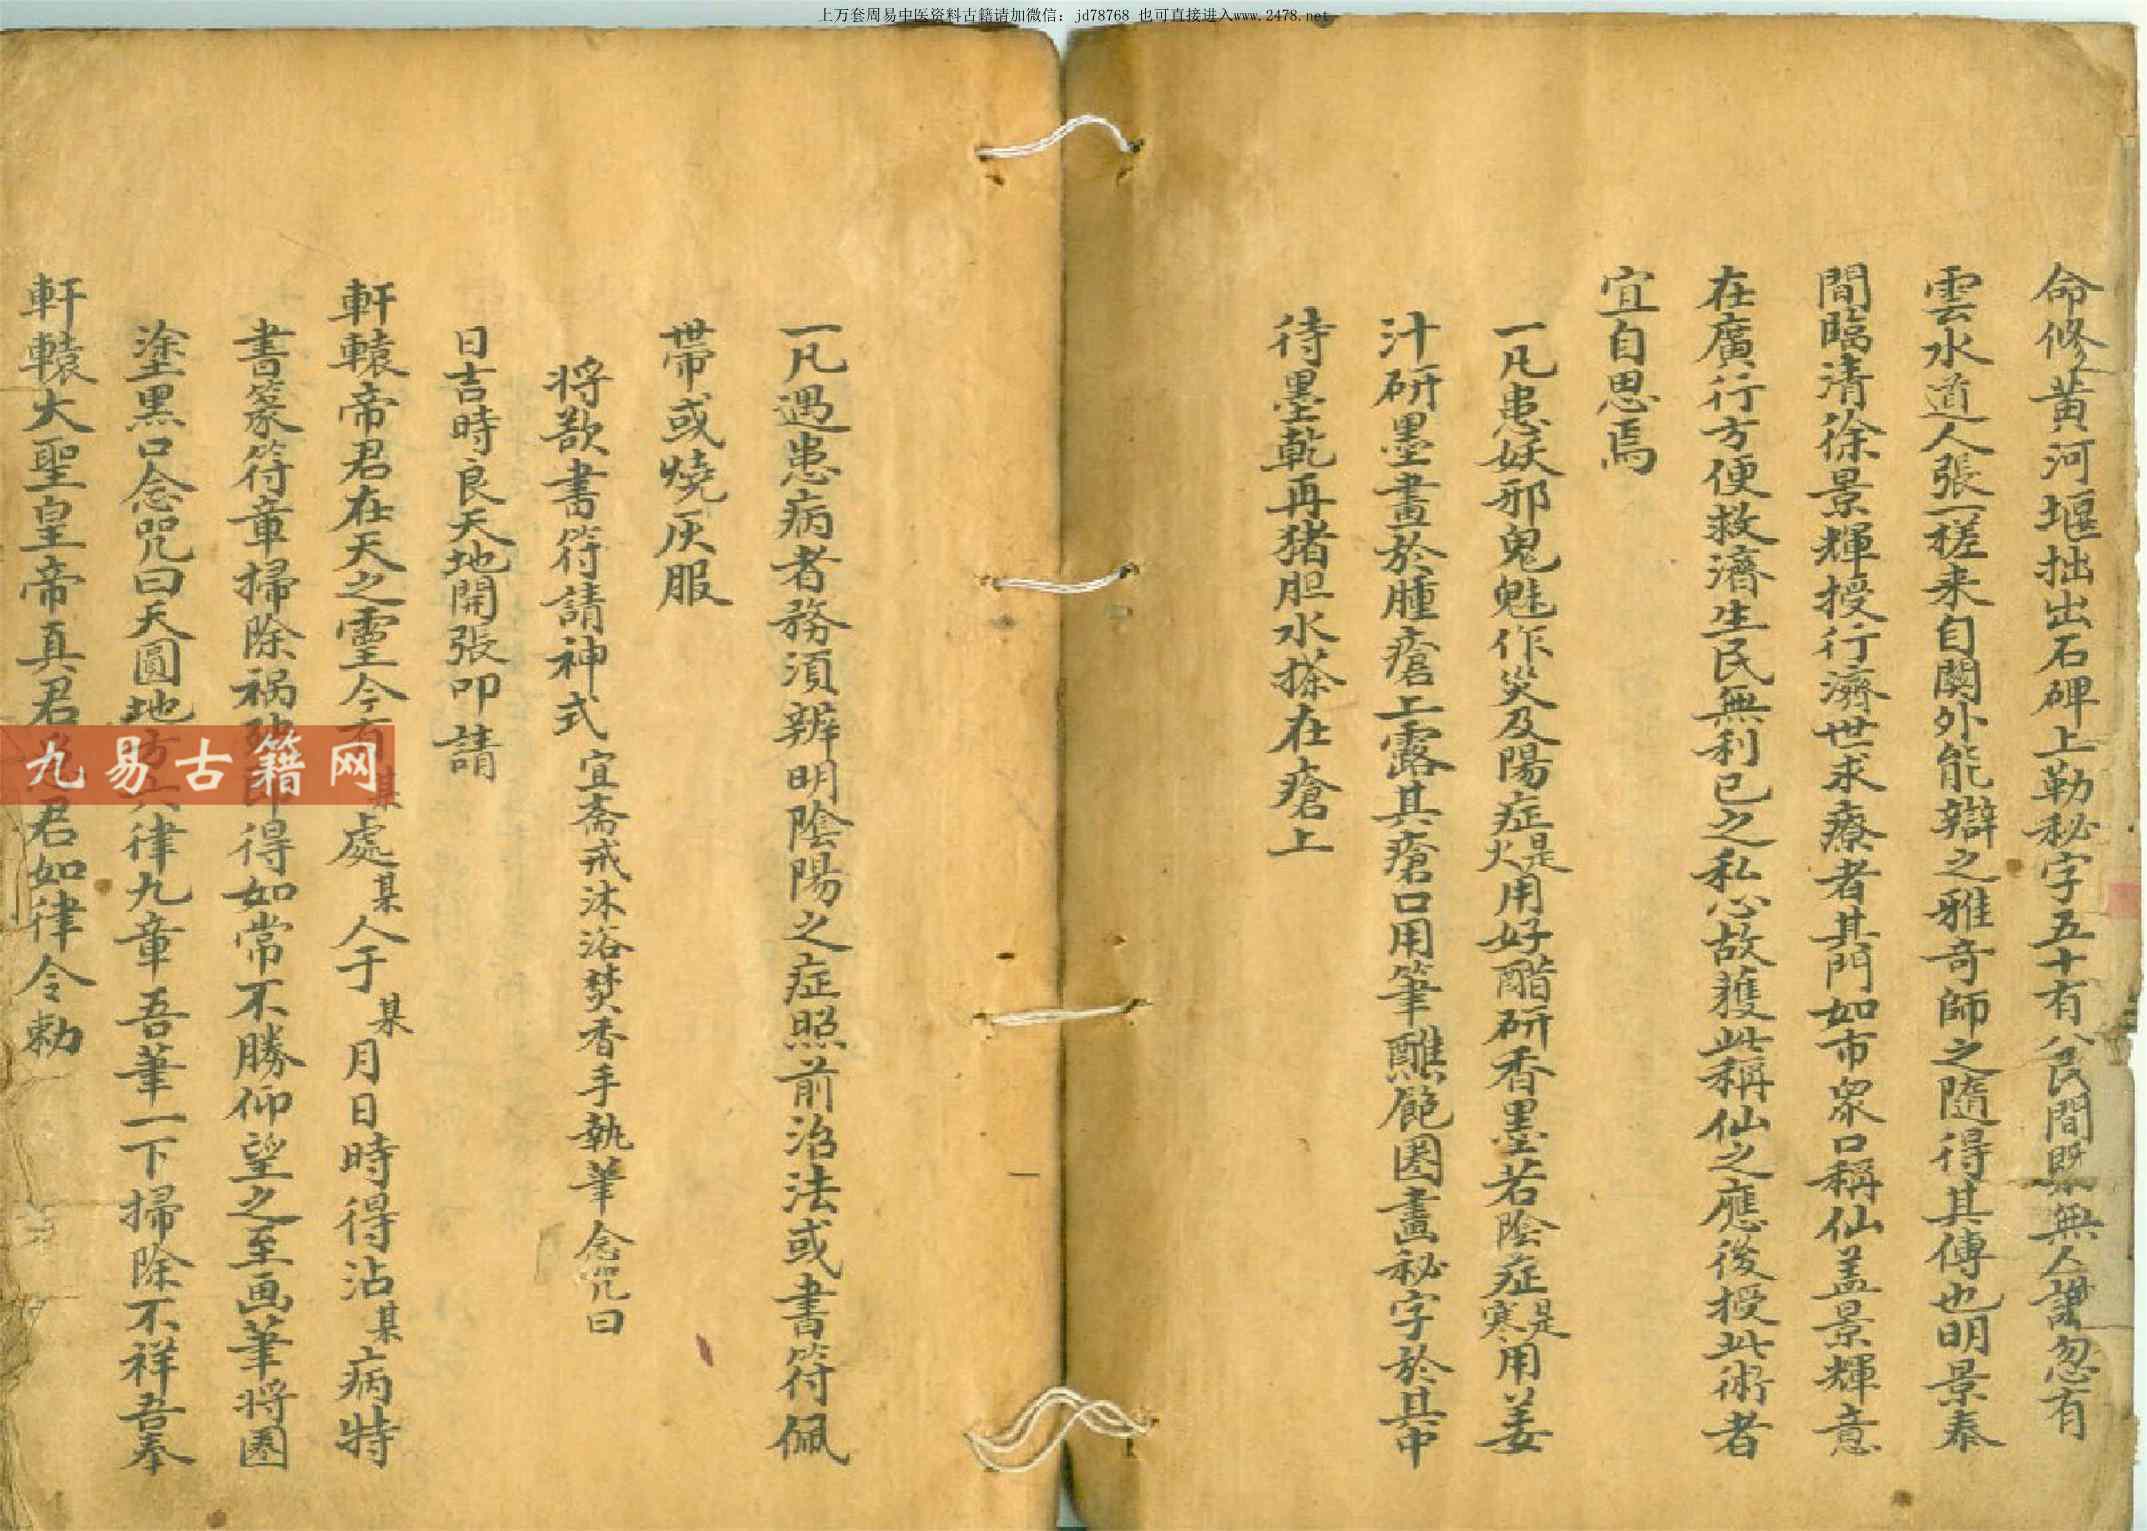 上万套周易中医资料古籍请加微信：jd78768 也可直接进入www.2478.net
命修黃河堰拙出石碑上勒秘字五十有八民間既無人識忽有
雲水道人張一槎来自關外能辯之雅奇師之隨得其傳也明景泰
間臨清徐景輝授行濟世求療者其門如市眾口稱仙盖景輝意
在廣行方便救濟生民無利已之私心故獲此稱仙之應後授此術者
宜自思焉
一凡患妖邪鬼魅作災及陽症是火用好醋研香墨若陰症是寒用姜
汁研墨畫於腫瘡上露其瘡口用筆醮飽圏畫秘字於其中
待墨乾再猪胆水搽在瘡上
一凡遇患病者務須辨明陰陽之症照前治法或書符佩
帶或燒灰服
将欲書符請神式 宜齋戒沐浴焚香手執筆念咒曰
日吉時良天地開張叩請
軒轅帝君在天之靈今有某處某人于某月日時得沾某病特
書篆符章掃除禍 得如常不勝仰望之至画筆将圏
塗黑口念咒曰天圓地方六律九章吾筆一下掃除不祥吾奉
軒轅大聖皇帝真君 君如律令勅
九易古籍网